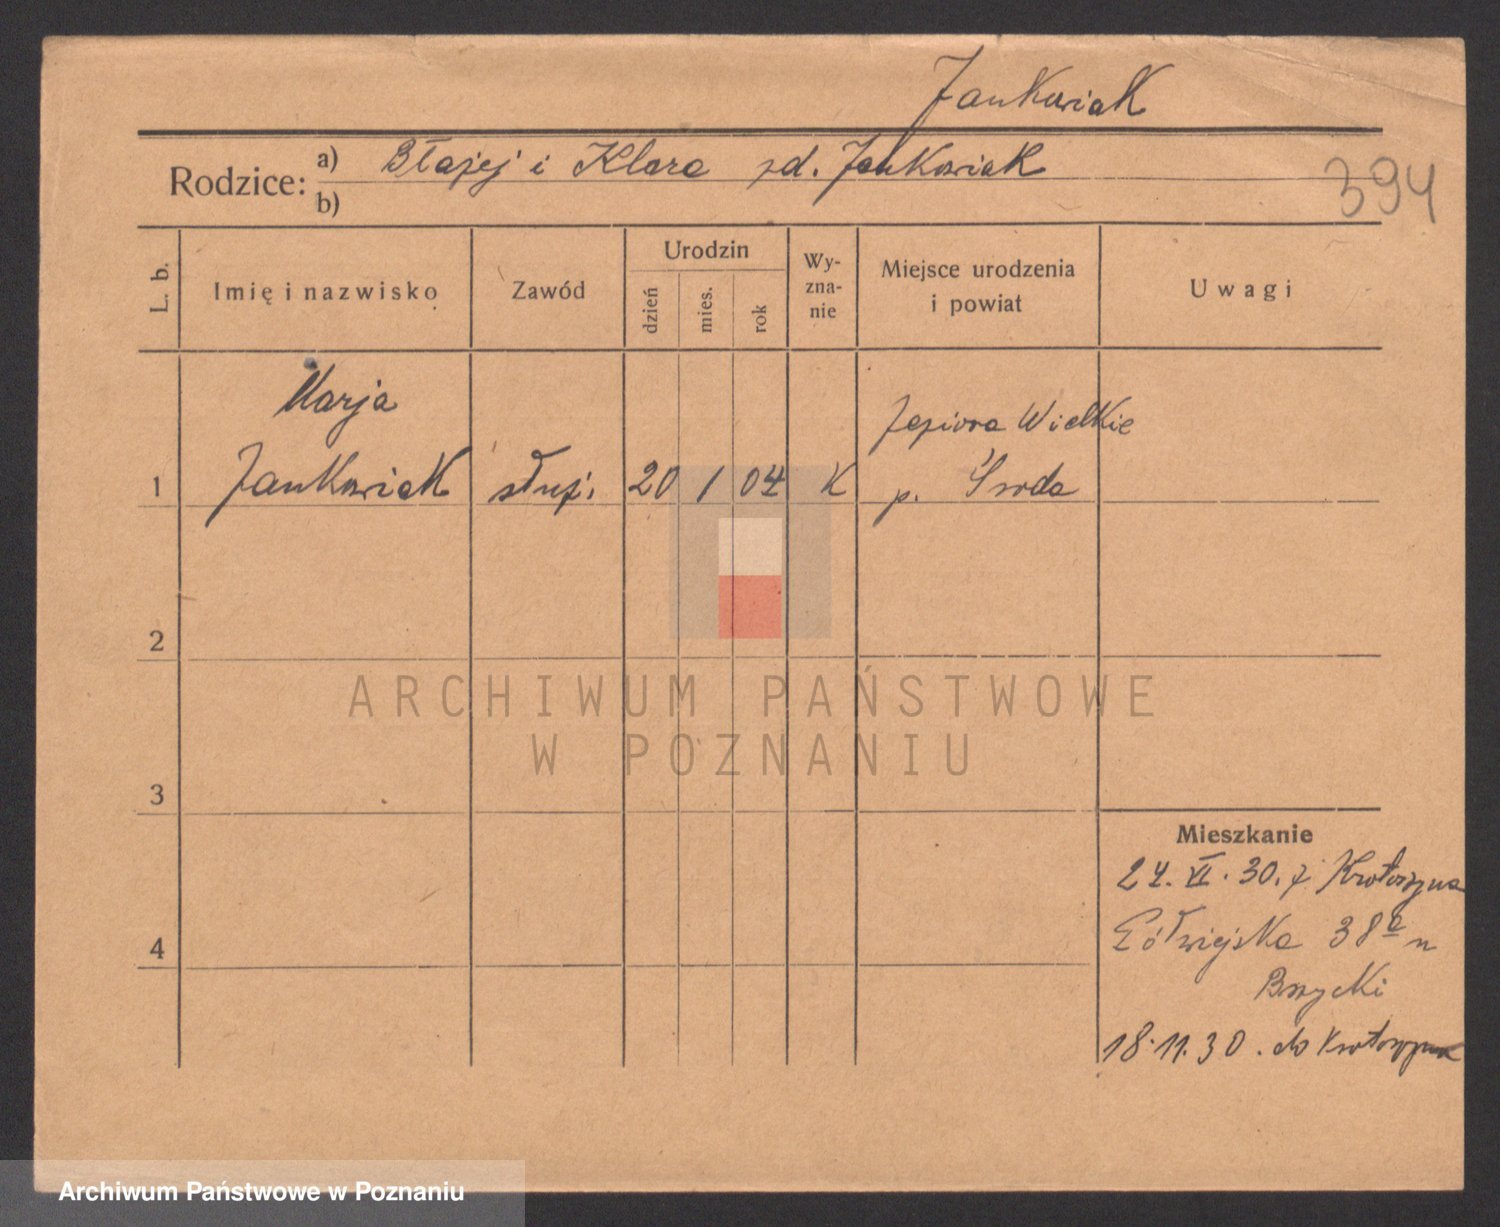 Jankowiak
Rodzice: a) Błażej i Klara zd. Jankowiak
b)
394
L. b.
Imię i nazwisko
Zawód
Urodzin
dzień
mies.
rok
Wy-
zna-
nie
Miejsce urodzenia
i powiat
Uwagi
Marja
Jankowiak
1
służ.
20
1
04
K
Jeziora Wielkie
p. Środa
2
3
4
ARCHIWUM PAŃSTWOWE
W POZNANIU
Mieszkanie
24. VI. 30. z Krotoszyna
Półwiejska 38a u
18.11.30. do Krotoszyna
Archiwum Państwowe w Poznaniu